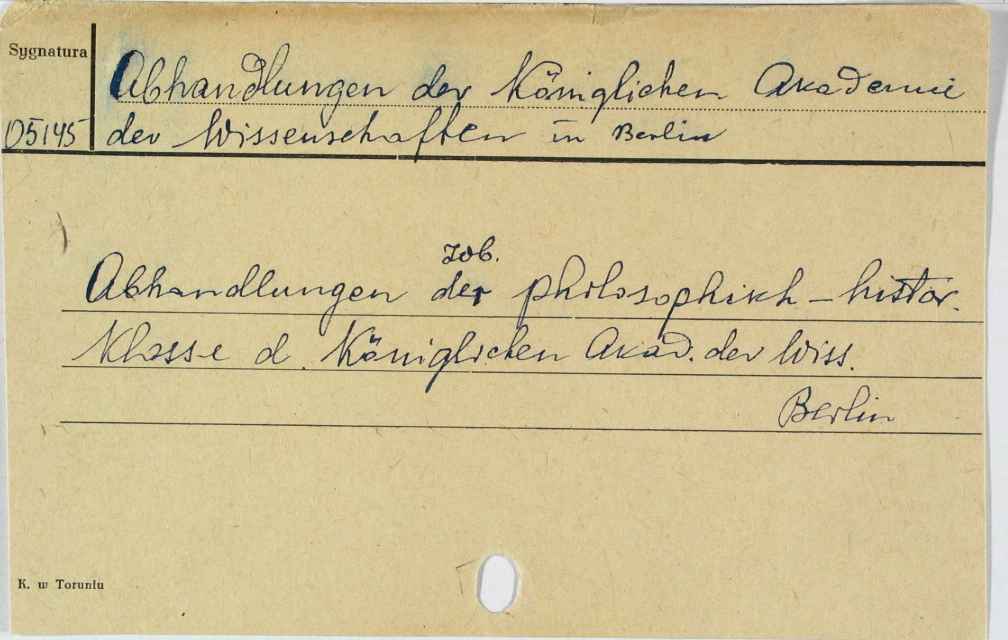 Sygnatura
Abhandlungen der Königlichen Akademie
05145 der Wissenschaften in Berlin
zob.
Abhandlungen der philosophisch - histor.
Klasse d. Königlichen Akad. der Wiss.
Berlin
K. w Toruniu